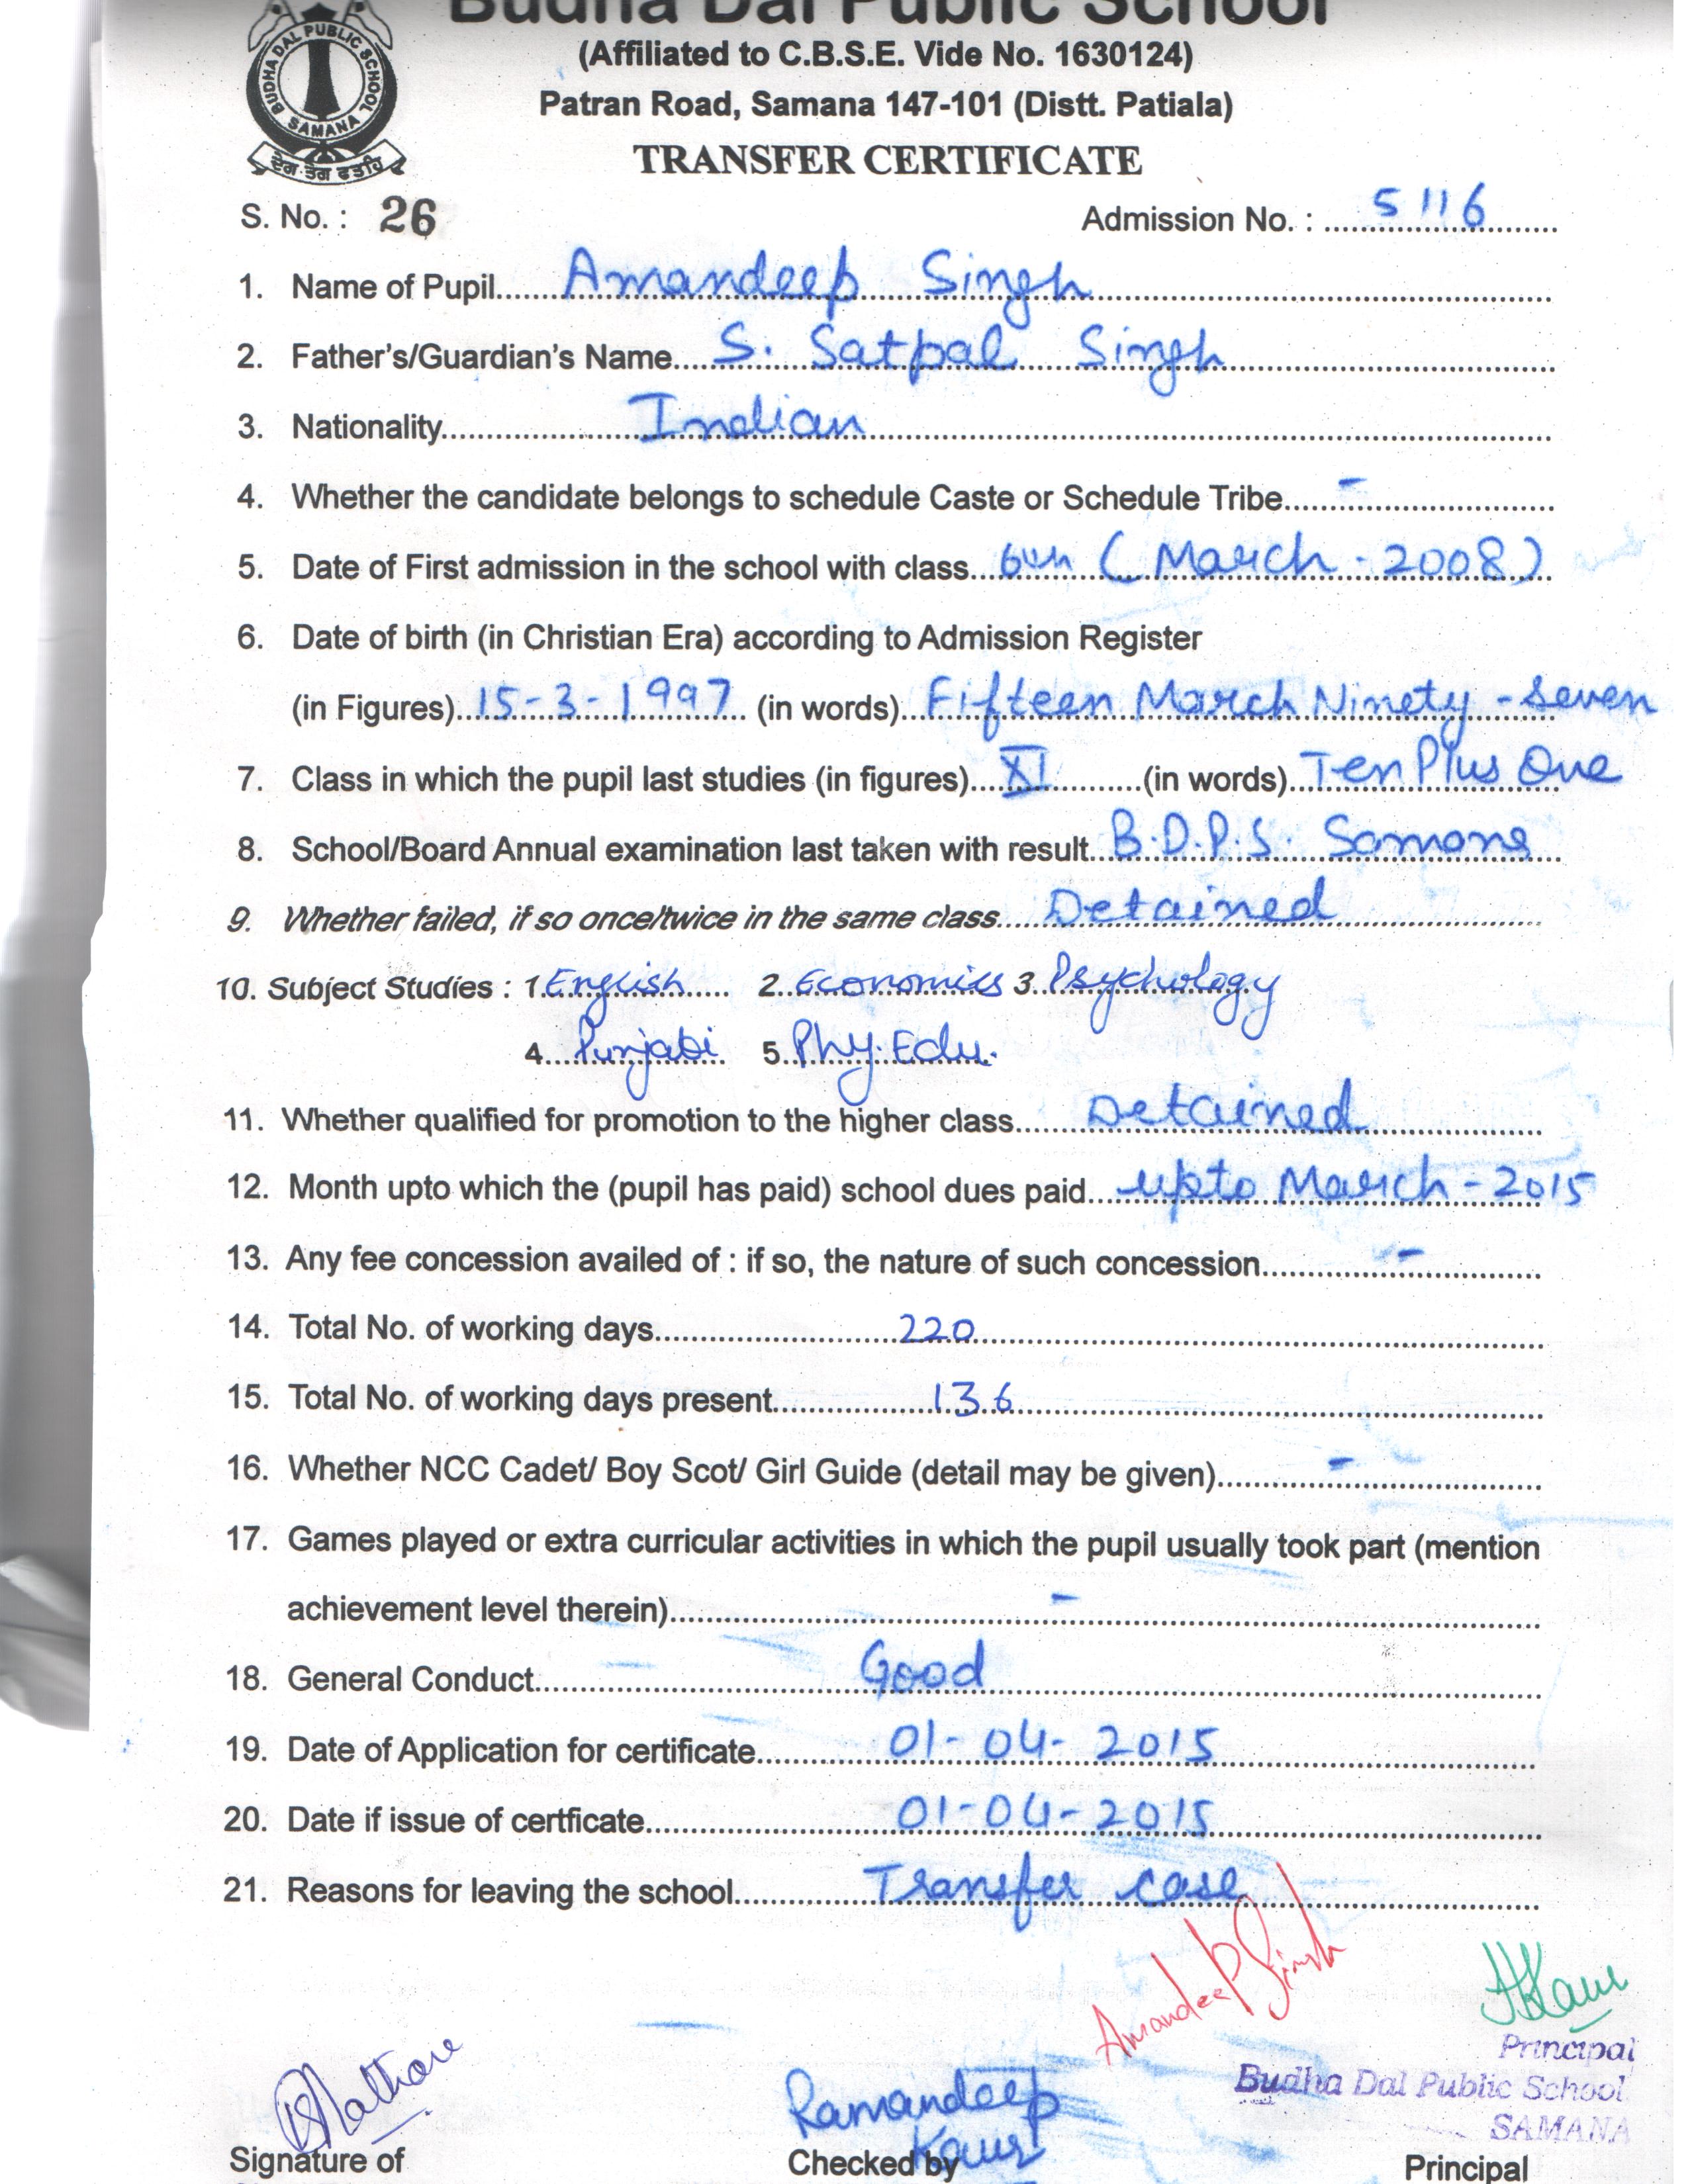 Budha Dal Public School
(Affiliated to C.B.S.E. Vide No. 1630124)
Patran Road, Samana 147-101 (Distt. Patiala)
BUDHA DAL PUBLIC SCHOOL
SAMANA
ਦੇਗ ਤੇਗ ਫਤਹਿ
TRANSFER CERTIFICATE
S. No. : 26 Admission No. : 5116
1. Name of Pupil Amandeep Singh
2. Father's/Guardian's Name S. Satpal Singh
3. Nationality Indian
4. Whether the candidate belongs to schedule Caste or Schedule Tribe -
5. Date of First admission in the school with class 6th (March - 2008)
6. Date of birth (in Christian Era) according to Admission Register
(in Figures) 15-3-1997 (in words) Fifteen March Ninety-seven
7. Class in which the pupil last studies (in figures) XI (in words) Ten Plus One
8. School/Board Annual examination last taken with result B.D.P.S. Samana
9. Whether failed, if so once/twice in the same class Detained
10. Subject Studies : 1. English 2. Economics 3. Psychology
4. Punjabi 5. Phy. Edu.
11. Whether qualified for promotion to the higher class Detained
12. Month upto which the (pupil has paid) school dues paid upto March - 2015
13. Any fee concession availed of : if so, the nature of such concession -
14. Total No. of working days 220
15. Total No. of working days present 136
16. Whether NCC Cadet/ Boy Scot/ Girl Guide (detail may be given) -
17. Games played or extra curricular activities in which the pupil usually took part (mention
achievement level therein) -
18. General Conduct Good
19. Date of Application for certificate 01-04-2015
20. Date if issue of certficate 01-04-2015
21. Reasons for leaving the school Transfer case
Amandeep Singh
Principal
Budha Dal Public School
SAMANA
Ramandeep
Kaur
Signature of Checked by Principal